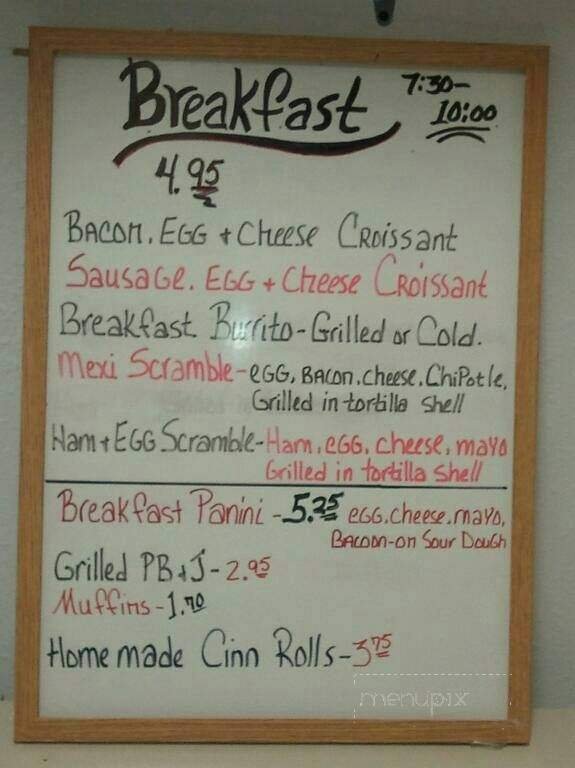 Breakfast 7:30-
10:00
4.95
Bacon, Egg + Cheese Croissant
Sausage, Egg + Cheese Croissant
Breakfast Burrito - Grilled or Cold.
Mexi Scramble - egg, Bacon, cheese, Chipotle,
Grilled in tortilla shell
Ham + Egg Scramble - Ham, egg, cheese, mayo
Grilled in tortilla shell
Breakfast Panini - 5.25 egg, cheese, mayo,
Bacoon - on Sour Dough
Grilled PB & J - 2.95
Muffins - 1.70
Home made Cinn Rolls - 3.75
menupix